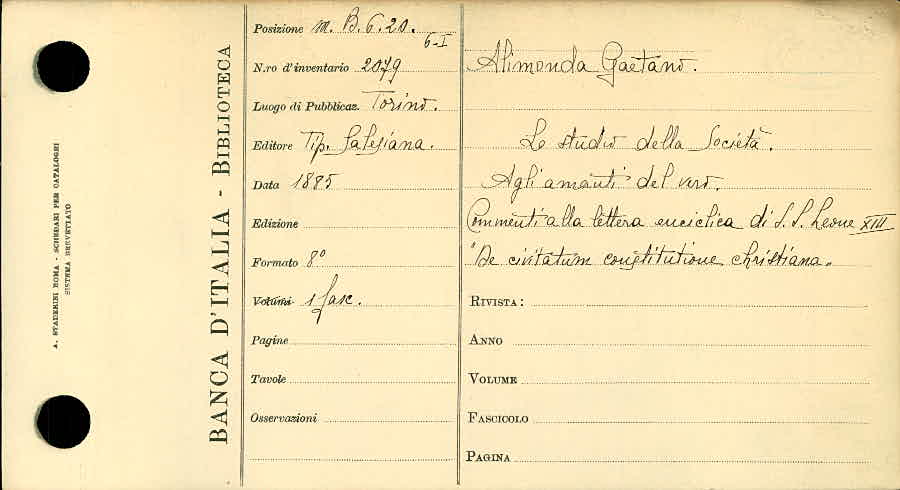 A. STADERINI ROMA - SCHEDARI PER CATALOGHI
SISTEMA BREVETTATO
BANCA D'ITALIA - BIBLIOTECA
Posizione m. B. 6. 20.
6-I
N.ro d'inventario 2079
Luogo di Pubblicaz. Torino.
Editore Tip. Salesiana.
Data 1885
Edizione
Formato 8º
Volumi 1 fasc.
Pagine
Tavole
Osservazioni
Alimonda Gaetano.
Lo studio della Società.
Agli amanti del vero.
Commenti alla lettera enciclica di S. S. Leone XIII
"De civitatum constitutione christiana.
RIVISTA:
ANNO
VOLUME
FASCICOLO
PAGINA